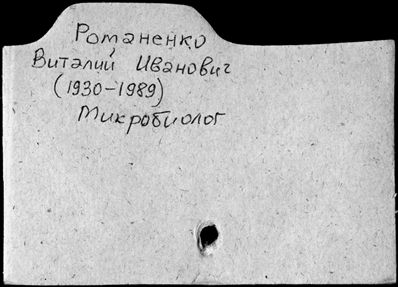 Романенко
Виталий Иванович
(1930-1989)
Микробиолог